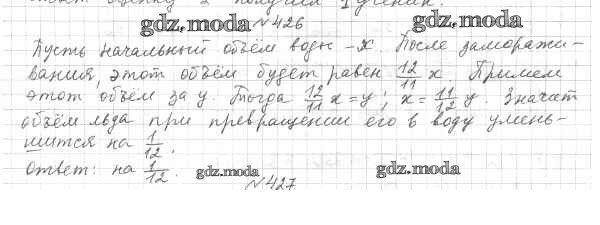 ответ оценку 2 получил 1 ученик.
gdz.moda №426 gdz.moda
Пусть начальный объём воды - x. После заморажи-
вания, этот объём будет равен 12/11 x. Примем
этот объём за y. Тогда 12/11 x = y; x = 11/12 y. Значит
объём льда при превращении его в воду умень-
шится на 1/12.
Ответ: на 1/12. gdz.moda gdz.moda
№427